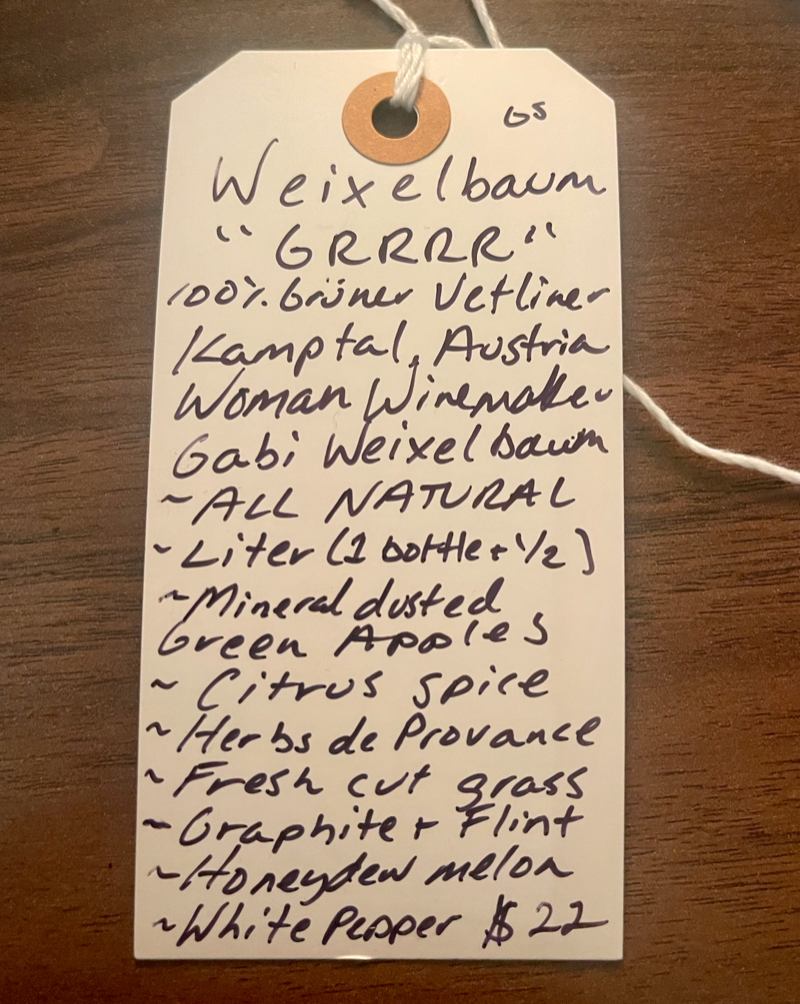 GS
Weixelbaum
"GRRRR"
100% Grüner Vetliner
Kamptal, Austria
Woman Winemaker
Gabi Weixelbaum
~ALL NATURAL
~Liter (1 bottle + 1/2)
~Mineral dusted
Green Apples
~ Citrus spice
~Herbs de Provance
~Fresh cut grass
~Graphite + Flint
~Honeydew melon
~White Pepper $22